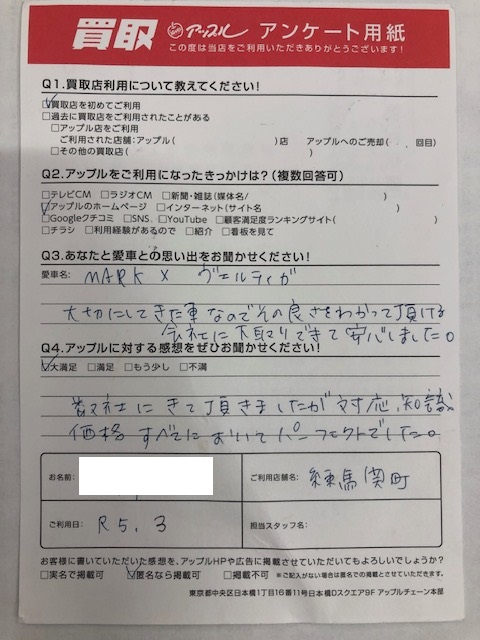 買取 アップル アンケート用紙
この度は当店をご利用いただきありがとうございます!
Q1.買取店利用について教えてください!
☑買取店を初めてご利用
□過去に買取店をご利用されたことがある
□アップル店をご利用
ご利用された店舗:アップル( )店 アップルへのご売却( 回目)
□その他の買取店( )
Q2.アップルをご利用になったきっかけは?(複数回答可)
□テレビCM □ラジオCM □新聞・雑誌(媒体名/ )
☑アップルのホームページ □インターネット(サイト名 )
□Googleクチコミ □SNS □YouTube □顧客満足度ランキングサイト( )
□チラシ □利用経験があるので □紹介 □看板を見て
Q3.あなたと愛車との思い出をお聞かせください!
愛車名: MARK X ヴェルティガ
大切にしてきた車なのでその良さをわかって頂ける
会社に下取りできて安心しました。
Q4.アップルに対する感想をぜひお聞かせください!
☑大満足 □満足 □もう少し □不満
数社にきて頂きましたが対応、知識
価格すべてにおいてパーフェクトでした。
お名前: ご利用店舗名: 練馬関町
ご利用日: R5.3 担当スタッフ名:
お客様に書いていただいた感想を、アップルHPや広告に掲載させていただいてもよろしいでしょうか?
□実名で掲載可 ☑匿名なら掲載可 □掲載不可 ※ご記入がない場合は匿名での掲載とさせていただきます。
東京都中央区日本橋1丁目16番11号日本橋Dスクエア9F アップルチェーン本部